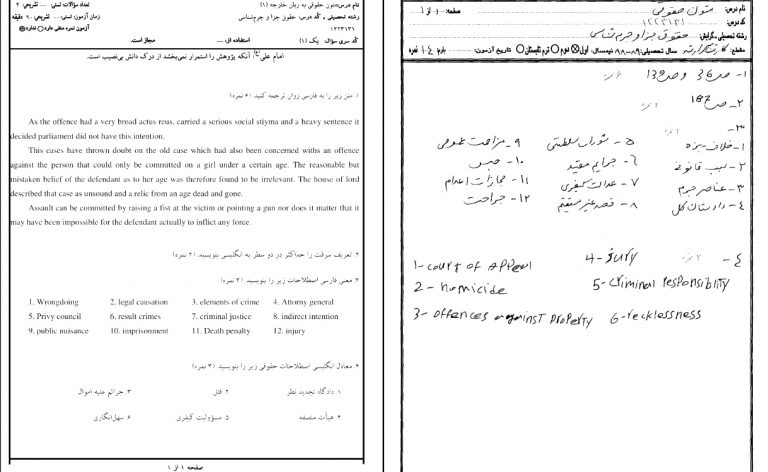 نام درس: متون حقوقی به زبان خارجه (۱)
تعداد سؤالات: تستی: --- تشریحی: ۴
رشته تحصیلی و کد درس: حقوق جزا و جرم‌شناسی
زمان آزمون: تستی: --- تشریحی: ۹۰ دقیقه
۱۲۲۳۱۳۱
آزمون نمره منفی دارد ○ ندارد
کد سری سؤال: یک (۱)
استفاده از: ---
مجاز است.
امام علی(ع): آنکه پژوهش را استمرار نمی‌بخشد از درک دانش بی‌نصیب است.
۱. متن زیر را به فارسی روان ترجمه کنید. (۶ نمره)
As the offence had a very broad actus reus, carried a serious social stiyma and a heavy sentence it
decided parliament did not have this intention.
This cases have thrown doubt on the old case which had also been concerned withs an offence
against the person that could only be committed on a girl under a certain age. The reasonable but
mistaken belief of the defendant as to her age was therefore found to be irrelevant. The house of lord
described that case as unsound and a relic from an age dead and gone.
Assault can be committed by raising a fist at the victim or pointing a gun nor does it matter that it
may have been impossible for the defendant actually to inflict any force.
۲. تعریف سرقت را حداکثر در دو سطر به انگلیسی بنویسید. (۲ نمره)
۳. معنی فارسی اصطلاحات زیر را بنویسید. (۳ نمره)
1. Wrongdoing 2. legal causation 3. elements of crime 4. Attorny general
5. Privy council 6. result crimes 7. criminal justice 8. indirect intention
9. public nuisance 10. imprisonment 11. Death penalty 12. injury
۴. معادل انگلیسی اصطلاحات حقوقی زیر را بنویسید. (۳ نمره)
۱. دادگاه تجدید نظر ۲. قتل ۳. جرائم علیه اموال
۴. هیأت منصفه ۵. مسؤولیت کیفری ۶. سهل‌انگاری
صفحه ۱ از ۱
نام درس: متون حقوقی
صفحه: ۱ از ۱
کد درس: ۱۲۲۳۱۳۱
رشته تحصیلی-گرایش: حقوق جزا و جرم شناسی
مقطع: کارشناسی ارشد سال تحصیلی: ۸۹-۸۸ نیمسال: اول دوم ○ ترم تابستان ○ تاریخ آزمون: بارم: ۱۴ نمره
۱- ص 36 و ص 139
۲- ص 187
۳-
۱- خلاف، بزه ۵- شورای سلطنتی ۹- مزاحمت عمومی
۲- سبب قانونی ۶- جرایم مقید ۱۰- حبس
۳- عناصر جرم ۷- عدالت کیفری ۱۱- مجازات اعدام
۴- دادستان کل ۸- قصد غیر مستقیم ۱۲- جراحت
۴- ۳ نمره
1- court of Appeal 4- Jury
2- homicide 5- Criminal responsiblity
3- offences against property 6- recklessness